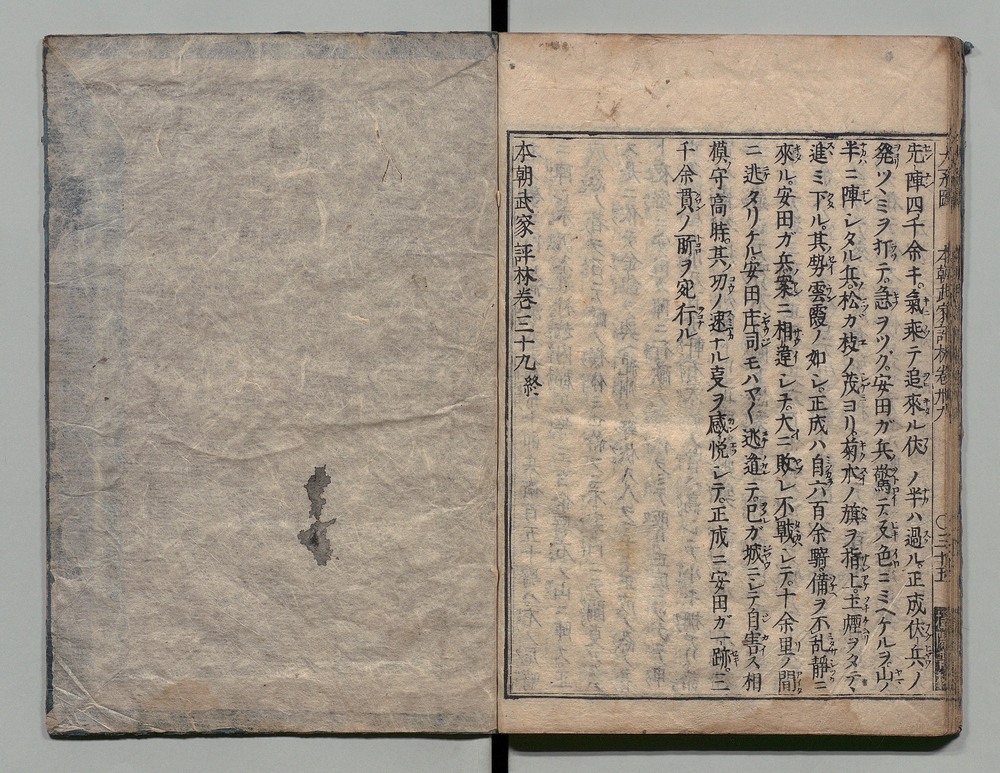 先陣四千余キ。氣乗テ追來ル伏ノ半ハ過ル。正成伏兵ノ
発ツヽミヲ打テ。急ヲツグ。安田ガ兵驚テ。又色ニミヘケルヲ。山ノ
半ニ陣シタル兵。松カ枝ノ茂ヨリ。菊水ノ旗ヲ指上。土煙ヲタテヽ
進ミ下ル。其勢雲霞ノ如シ。正成ハ自六百余騎。備ヲ不乱靜ニ
來ル。安田ガ兵。案ニ相違シテ。大ニ敗レ不戰シテ。十余里ノ間
ニ逃タリケル。安田庄司モハヤ〱逃道テ。己ガ城ニシテ自害ス相
模ノ守高時。其ノ功ノ速ナル叓ヲ感悦シテ。正成ニ安田ガ一跡。三
千余貫ノ所ヲ宛行ル
本朝武家評林巻三十九終
本朝武家評林巻卅九
〇三十五